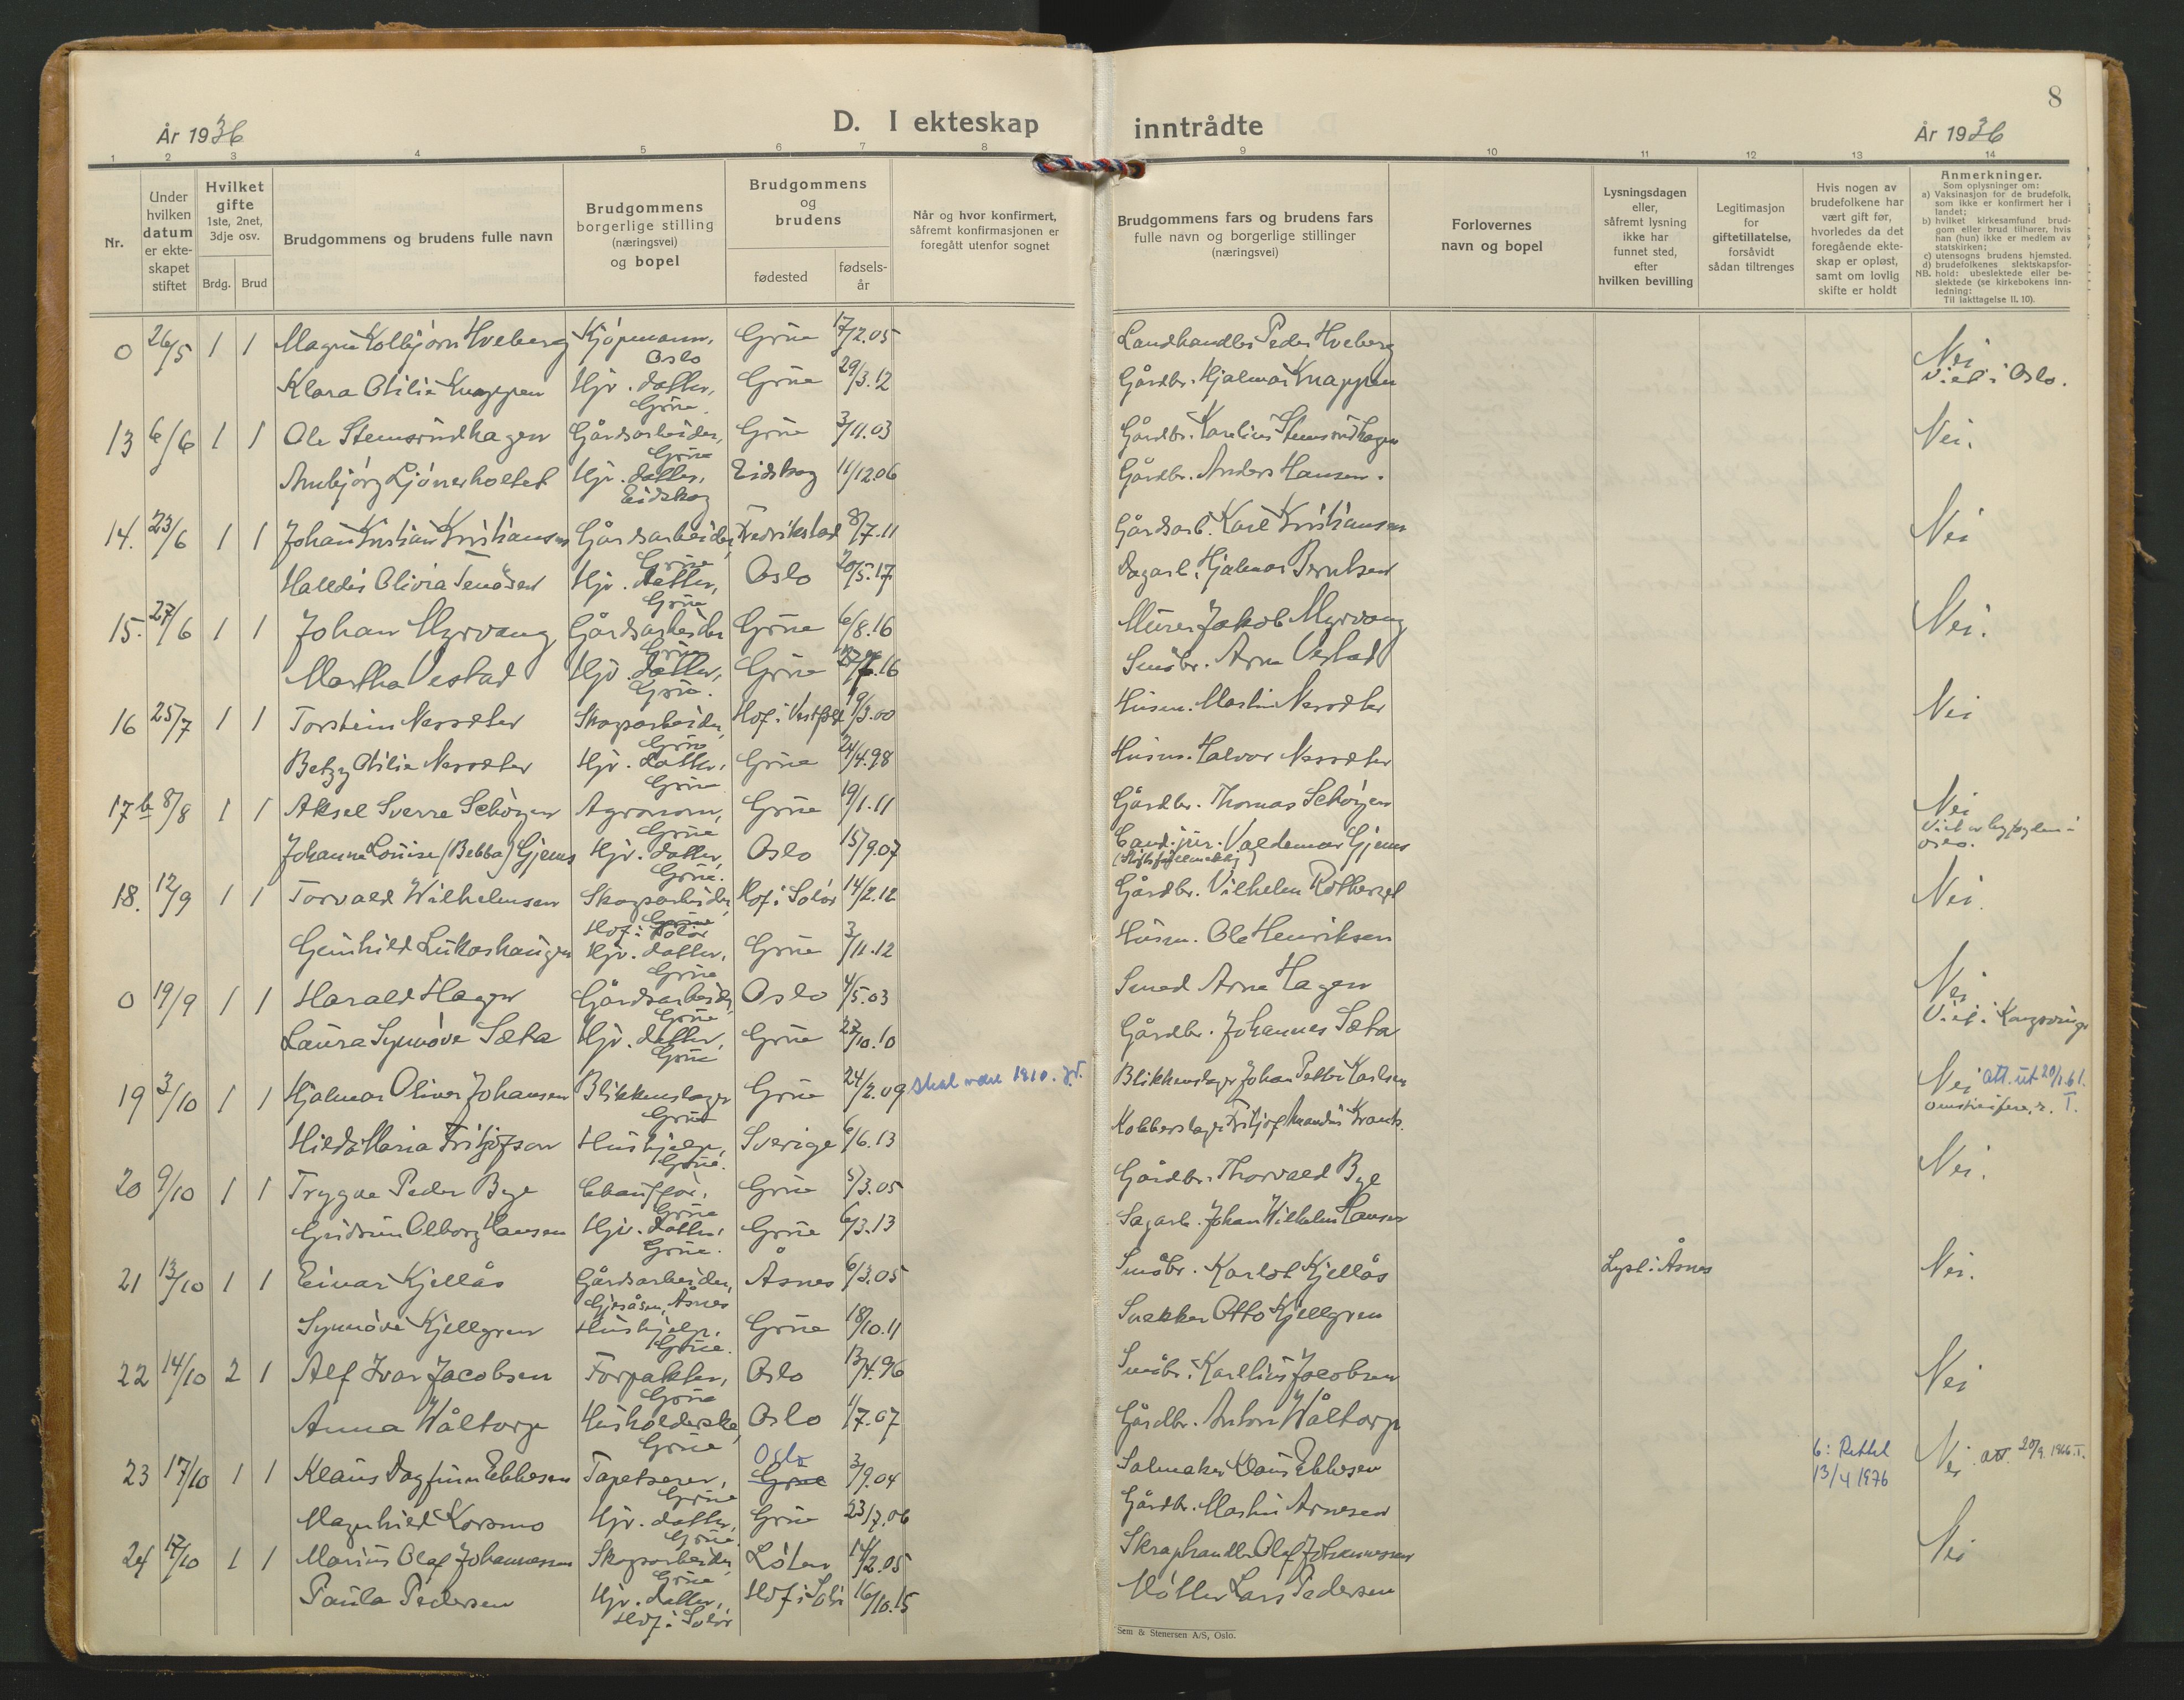 8
År 1936
D. I ekteskap inntrådte
År 1936
1 2 3 4 5 6 7 8 9 10 11 12 13 14
Nr.
Under hvilken datum er ekteskapet stiftet
Hvilket gifte 1ste, 2net, 3dje osv.
Brdg. Brud
Brudgommens og brudens fulle navn
Brudgommens borgerlige stilling (næringsvei) og bopel
Brudgommens og brudens
fødested
fødsels-år
Når og hvor konfirmert, såfremt konfirmasjonen er foregått utenfor sognet
Brudgommens fars og brudens fars fulle navn og borgerlige stillinger (næringsvei)
Forlovernes navn og bopel
Lysningsdagen eller, såfremt lysning ikke har funnet sted, efter hvilken bevilling
Legitimasjon for giftetillatelse, forsåvidt sådan tiltrenges
Hvis nogen av brudefolkene har vært gift før, hvorledes da det foregående ekteskap er opløst, samt om lovlig skifte er holdt
Anmerkninger.
Som oplysninger om:
a) Vaksinasjon for de brudefolk, som ikke er konfirmert her i landet;
b) hvilket kirkesamfund brudgom eller brud tilhører, hvis han (hun) ikke er medlem av statskirken;
c) utensogns brudens hjemsted.
d) brudefolkenes slektskapsforhold: ubeslektede eller beslektede (se kirkebokens innledning:
NB. Til iakttagelse II. 10).
0 26/5 1 1 Magne Kolbjørn Hveberg Kjøpmann, Oslo Grue 17/2.05 Landhandler Peder Hveberg Nei Viet i Oslo.
Klara Otilie Knappen Hjv. datter, Grue. Grue 29/3.12 Gårdbr. Hjalmar Knappen
13 6/6 1 1 Ole Stemsrudhagen Gårdsarbeider, Grue Grue 3/11.03 Gårdbr. Karelius Stemsrudhagen Nei.
Annbjørg Ljønerholtet Hjv. datter, Eidskog Eidskog 11/12.06 Gårdbr. Anders Hansen.
14. 23/6 1 1 Johan Kristian Kristiansen Gårdsarbeider, Grue Fredrikstad 8/7.11 Gårdsarb. Karl Kristiansen Nei
Halldis Olivia Hjv. datter, Grue Oslo 20/5.17 Dagarb. Hjalmar Berntsen
15. 27/6 1 1 Johan Myrvang Gårdsarbeider Grue Grue 6/8.16 Murer Jakob Myrvang Nei.
Martha Vestad Hjv. datter, Grue. Grue 16 Småbr. Arne Vestad
16 25/7 1 1 Torstein Nesseter Skogsarbeider, Grue Hof i Vestfold 19/3.00 Husm. Martin Nesseter Nei
Betzy Otilie Nesseter Hjv. datter, Grue Grue 24/4.98 Husm. Halvor Nesseter
17 b 8/8 1 1 Aksel Sverre Schøyen Agronom, Grue Grue 19/1.11 Gårdbr. Thomas Schøyen Nei Viet av byfogden i Oslo.
Johanne Louise (Bebba) Gjems Hjv. datter, Grue. Oslo 15/9.07 Cand. jur. Valdemar Gjems
18. 12/9 1 1 Torvald Wilhelmsen Skogsarbeider, Grue Hof i Solør Hof i Solør 14/2.12 Gårdbr. Vilhelm Nei
Gunhild Lukashaugen Hjv. datter, Grue Grue 3/11.12 Husm. Ole Henriksen
0 19/9 1 1 Harald Hagen Gårdsarbeider, Grue Oslo 4/5.03 Smed Arne Hagen Nei Viet i Kongsvinger
Laura Synnøve Sæta Hjv. datter, Grue Grue 27/10.10 Gårdbr. Johannes Sæta
19 3/10 1 1 Hjalmar Oliver Johansen Blikkenslager Grue Grue 24/2.09 Skal være 1910. Blikkenslager Johan Petter Karlsen Nei att. ut 20/1.61.
Hilda Maria Fritjofson Hushjelp, Grue. Sverige 6/6.13 Kobberslager Fritjof Amandus Krantz.
20 9/10 1 1 Trygve Peder Bye Chauffør, Grue Grue 5/3.05 Gårdbr. Thorvald Bye Nei.
Gudrun Olborg Hansen Hjv. datter, Grue. Grue 6/3.13 Sagarb. Johan Wilhelm Hansen
21 13/10 1 1 Einar Kjellås Gårdsarbeider, Gjesåsen, Åsnes Åsnes 6/3.05 Småbr. Karlot Kjellås Lyst i Åsnes Nei.
Synnøve Kjellgren Hushjelp, Grue. Grue 18/10.11 Snekker Otto Kjellgren
22 14/10 2 1 Alf Ivar Jacobsen Forpakter, Grue Oslo 13/4.96 Småbr. Karelius Jacobsen Nei
Anna Wåltorp Husholderske, Grue Oslo 1/7.07 Gårdbr. Anton Wåltorp
23 17/10 1 1 Klaus Dagfinn Ebbesen Tapetserer, Grue Oslo Grue 3/9.04 Salmaker Klaus Ebbesen 6: Rettet 13/4 1976 Nei att. 20/9. 1966
Magnhild Korsmo Hjv. datter, Grue. Grue 23/7.06 Gårdbr. Martin Arnesen
24 17/10 1 1 Marius Olaf Johannessen Skogsarbeider, Grue Løten 14/2.05 Skraphandler Olaf Johannessen Nei
Paula Pedersen Hjv. datter, Hof i Solør Hof i Solør 16/10.15 Møller Lars Pedersen
Sem & Stenersen A/S, Oslo.